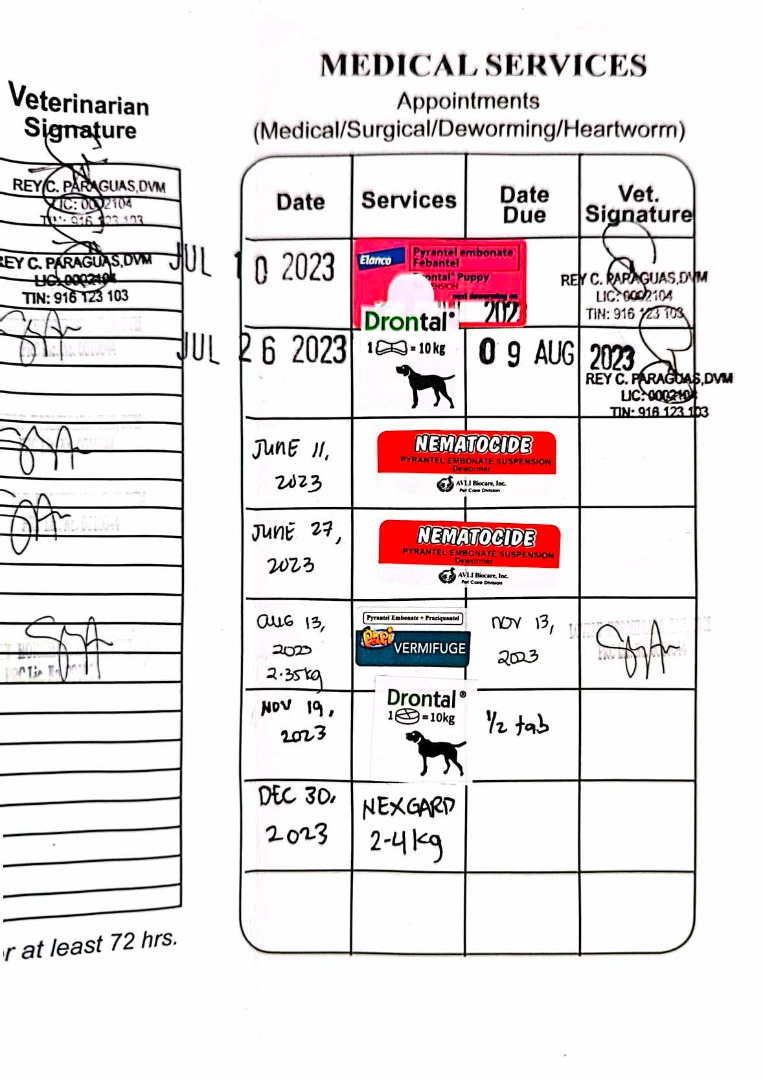 Veterinarian
Signature
REY C. PARAGUAS,DVM
LIC: 0002104
TIN: 916 123 103
REY C. PARAGUAS,DVM
LIC: 0002104
TIN: 916 123 103
r at least 72 hrs.
MEDICAL SERVICES
Appointments
(Medical/Surgical/Deworming/Heartworm)
Date Services Date Due Vet. Signature
JUL 10 2023
Elanco
Pyrantel embonate
Febantel
Drontal® Puppy
next deworming on
202
REY C. PARAGUAS,DVM
LIC: 0002104
TIN: 916 123 103
JUL 26 2023
Drontal®
1 = 10 kg
09 AUG 2023
REY C. PARAGUAS,DVM
LIC: 0002104
TIN: 916 123 103
JUNE 11,
2023
NEMATOCIDE
PYRANTEL EMBONATE SUSPENSION
Dewormer
AVLI Biocare, Inc.
Pet Care Division
JUNE 27,
2023
NEMATOCIDE
PYRANTEL EMBONATE SUSPENSION
Dewormer
AVLI Biocare, Inc.
Pet Care Division
AUG 13,
2023
2.35kg
Pyrantel Embonate + Praziquantel
Papi
VERMIFUGE
NOV 13,
2023
NOV 19,
2023
Drontal®
1 = 10kg
1/2 tab
DEC 30,
2023
NEXGARD
2-4kg